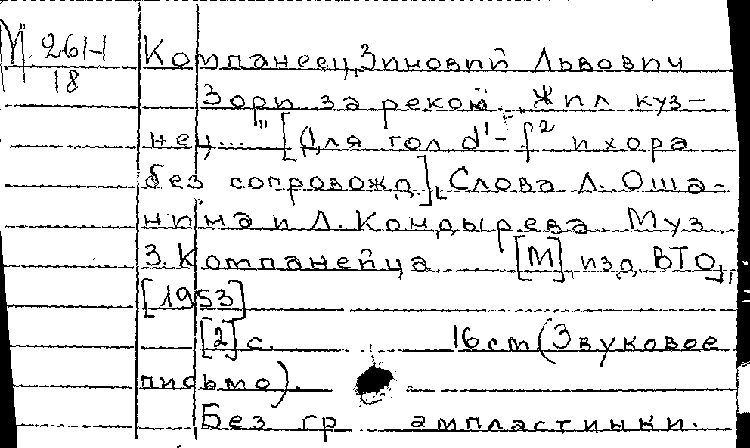 М 261-1
18
Компанеец, Зиновий Львович
Зори за рекой. "Жил куз-
нец..." [Для гол d¹-f² и хора
без сопровожд.], Слова Л. Оша-
нина и Л. Кондырева Муз
З. Компанейца [М], изд. ВТО,
[1953]
[2] с. 16 см (Звуковое
письмо).
Без гр ампластинки.